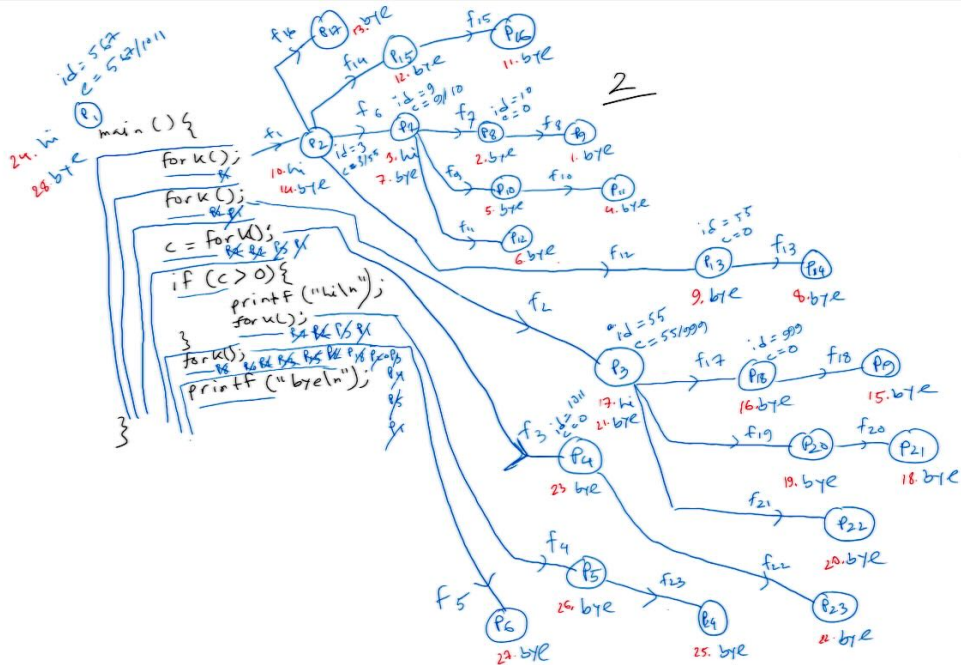 2
id = 567
c = 567/1011
P1
24. hi
28. bye
main() {
fork();
fork();
c = fork();
if (c > 0) {
printf("hi\n");
fork();
}
fork();
printf("bye\n");
}
f1
P2
id = 3
10. hi
14. bye
f16
P17
13. bye
f14
P15
12. bye
f15
P16
11. bye
f6
P7
id = 9
c = 9/10
3. hi
7. bye
f7
P8
id = 10
c = 0
2. bye
f8
P9
1. bye
f9
P10
5. bye
f10
P11
4. bye
f11
P12
6. bye
f12
P13
id = 55
c = 0
9. bye
f13
P14
8. bye
f2
P3
id = 55
c = 55/999
17. hi
21. bye
f17
P18
id = 999
c = 0
16. bye
f18
P19
15. bye
f19
P20
19. bye
f20
P21
18. bye
f21
P22
20. bye
f3
P4
id = 1011
c = 0
23 bye
f22
P23
22. bye
f4
P5
26. bye
f23
P24
25. bye
f5
P6
27. bye